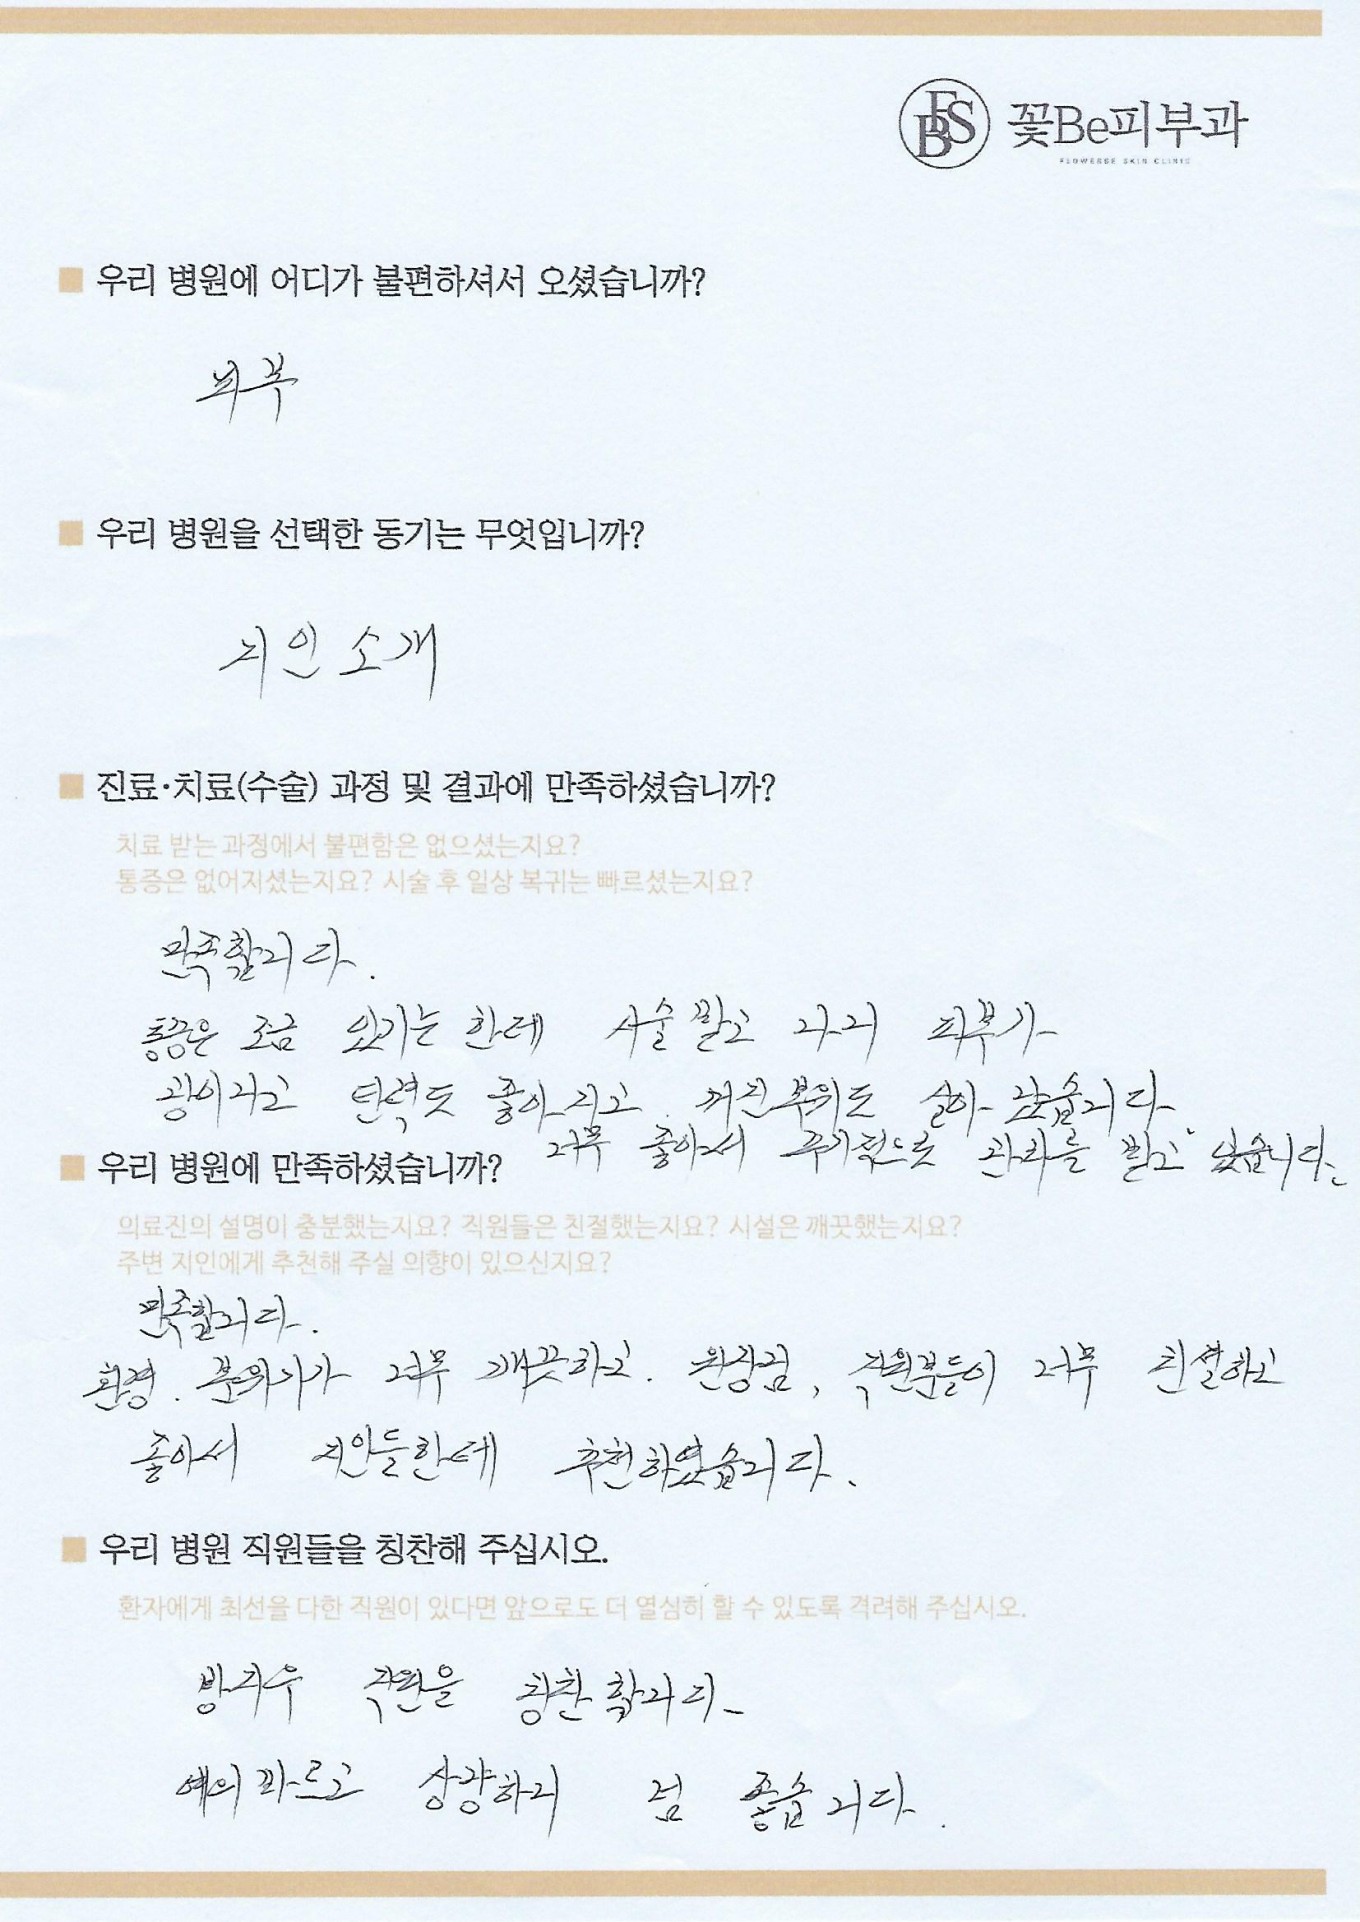 BFS 꽃Be피부과
FLOWERBE SKIN CLINIC
■ 우리 병원에 어디가 불편하셔서 오셨습니까?
피부
■ 우리 병원을 선택한 동기는 무엇입니까?
지인소개
■ 진료·치료(수술) 과정 및 결과에 만족하셨습니까?
치료 받는 과정에서 불편함은 없으셨는지요?
통증은 없어지셨는지요? 시술 후 일상 복귀는 빠르셨는지요?
만족합니다.
통증은 조금 있기는 한데 시술 받고 나니 피부가
광이나고 탄력도 좋아지고. 꺼진부위도 살아 났습니다
너무 좋아서 주기적으로 관리를 받고 있습니다.
■ 우리 병원에 만족하셨습니까?
의료진의 설명이 충분했는지요? 직원들은 친절했는지요? 시설은 깨끗했는지요?
주변 지인에게 추천해 주실 의향이 있으신지요?
만족합니다.
환경. 분위기가 너무 깨끗하고. 원장님, 직원분들이 너무 친절하고
좋아서 지인들한테 추천하였습니다.
■ 우리 병원 직원들을 칭찬해 주십시오.
환자에게 최선을 다한 직원이 있다면 앞으로도 더 열심히 할 수 있도록 격려해 주십시오.
방지우 직원을 칭찬합니다
예의바르고 상냥하니 넘 좋습니다.